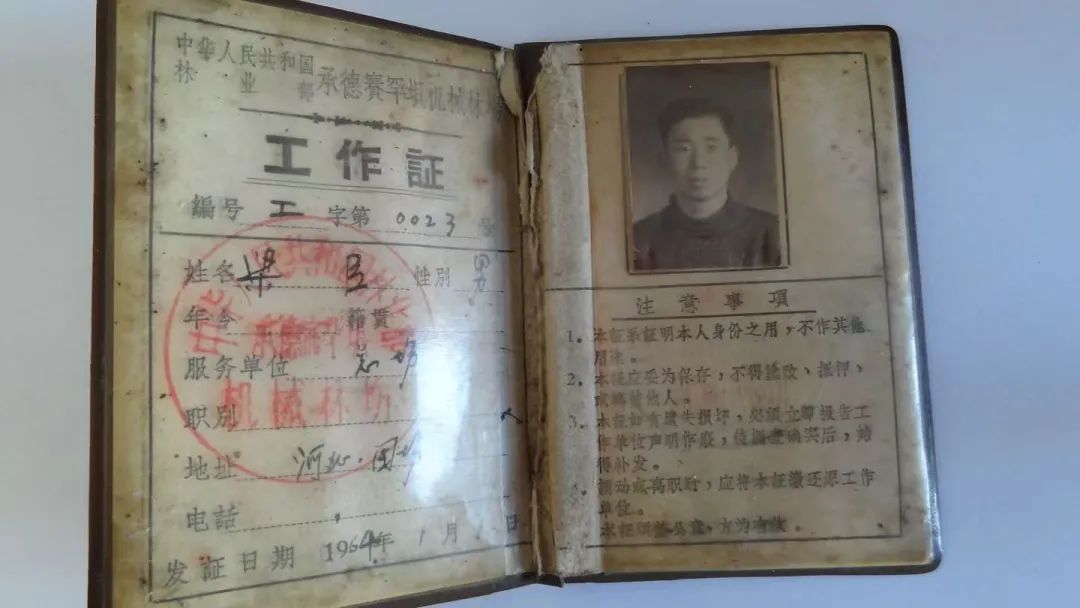 中华人民共和国
林业部
承德赛罕坝机械林场
工作证
编号 工 字第 0023 号
姓名 梁 臣 性别 男
年令 籍贯
服务单位
职别
地址 河北·围场
电話
发証日期 1964年1月 日
机械林场
注意事項
1. 本証系証明本人身份之用，不作其他
用途。
2. 本証应妥为保存，不得塗改，抵押，
或轉借他人。
3. 本証如有遺失損坏，必須立即报告工
作单位声明作廢，
得补发。
4. 調动或离职时，应将本証繳还原工作
单位。
本証須盖公章，方为有效。